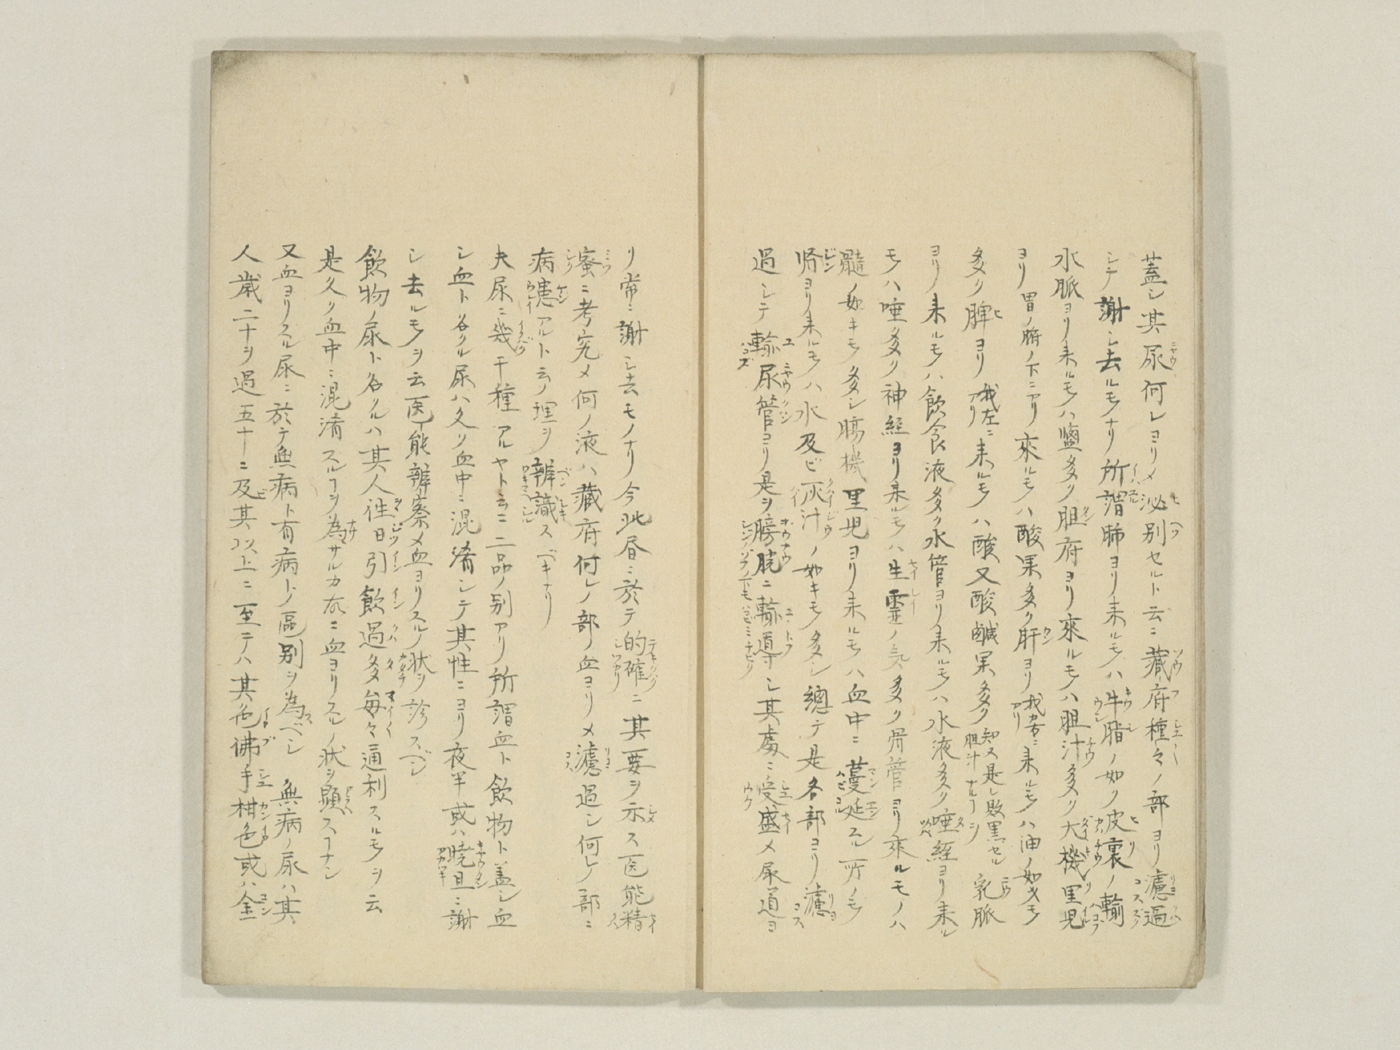 蓋シ其尿何レヨリメ泌別セルト云ニ藏府種々ノ部ヨリ濾過
シテ謝シ去ルモノナリ所謂肺ヨリ来ルモノハ牛脂ノ如ク皮裏ノ輸
水脈ヨリ来ルモノハ鹽多ク胆府ヨリ來ルモノハ胆汁多ク大機里児
ヨリ胃ノ腑ノ下ニアリ來ルモノハ酸累多ク肝ヨリ我右ニアリ来ルモノハ油ノ如キモ
多ク脾ヨリ我左ニアリ来ルモノハ酸又酸鹹累多ク 乳脈
ヨリ来ルモノハ飲食液多ク水管ヨリ来ルモノハ水液多ク唾経ヨリ来ル
モノハ唾多ク神経ヨリ来ルモノハ生霊ノ気多ク骨管ヨリ來ルモノハ
髓ノ如キモ多シ腸機里児ヨリ来ルモノハ血中ニ蔓延スル所ノモ
腎ヨリ来ルモノハ水及ビ灰汁ノ如キモ多シ總テ是各部ヨリ濾
過シテ輸尿管ヨリ是ヲ膀胱ニ輸導シ其處ニ受盛メ尿道ヨ
リ常ニ謝シ去モノナリ今此昼ニ於テ的確ニ其要ヲ示ス医能精
蜜ニ考究メ何ノ液ハ藏府何レノ部ノ血ヨリメ濾過シ何レノ部ニ
病アルト云ノ理ヲ辨識スベキナリ
夫尿ニ幾千種アルヤト云ニ二品ノ別アリ所謂血ト飲物ト蓋シ血
シ血ト名クル尿ハ久ク血中ニ混淆シテ其性ニヨリ夜半或ハ暁旦ニ謝
シ去ルモノヲ云医能辨察メ血ヨリスル状ヲ診スベシ
飲物ノ尿ト名クルハ其人性日引飲過多毎々通利スルモノヲ云
是久ク血中ニ混淆スルヿヲ為サルカ故ニ血ヨリスルノ状ヲ顕スヿナシ
又血ヨリスル尿ニ於テ無病ト有病トノ區別ヲ為スベシ 無病ノ尿ハ其
人歳二十ヲ過五十ニ及ビ其以上ニ至テハ其色佛手柑色或ハ金